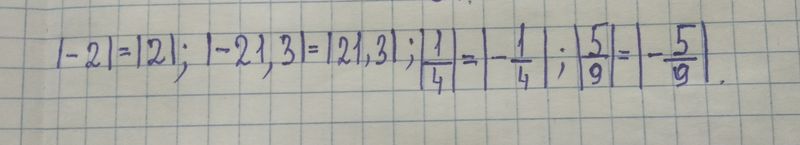 |-2|=|2|; |-21,3|=|21,3|; |1/4|=|-1/4|; |5/9|=|-5/9|.